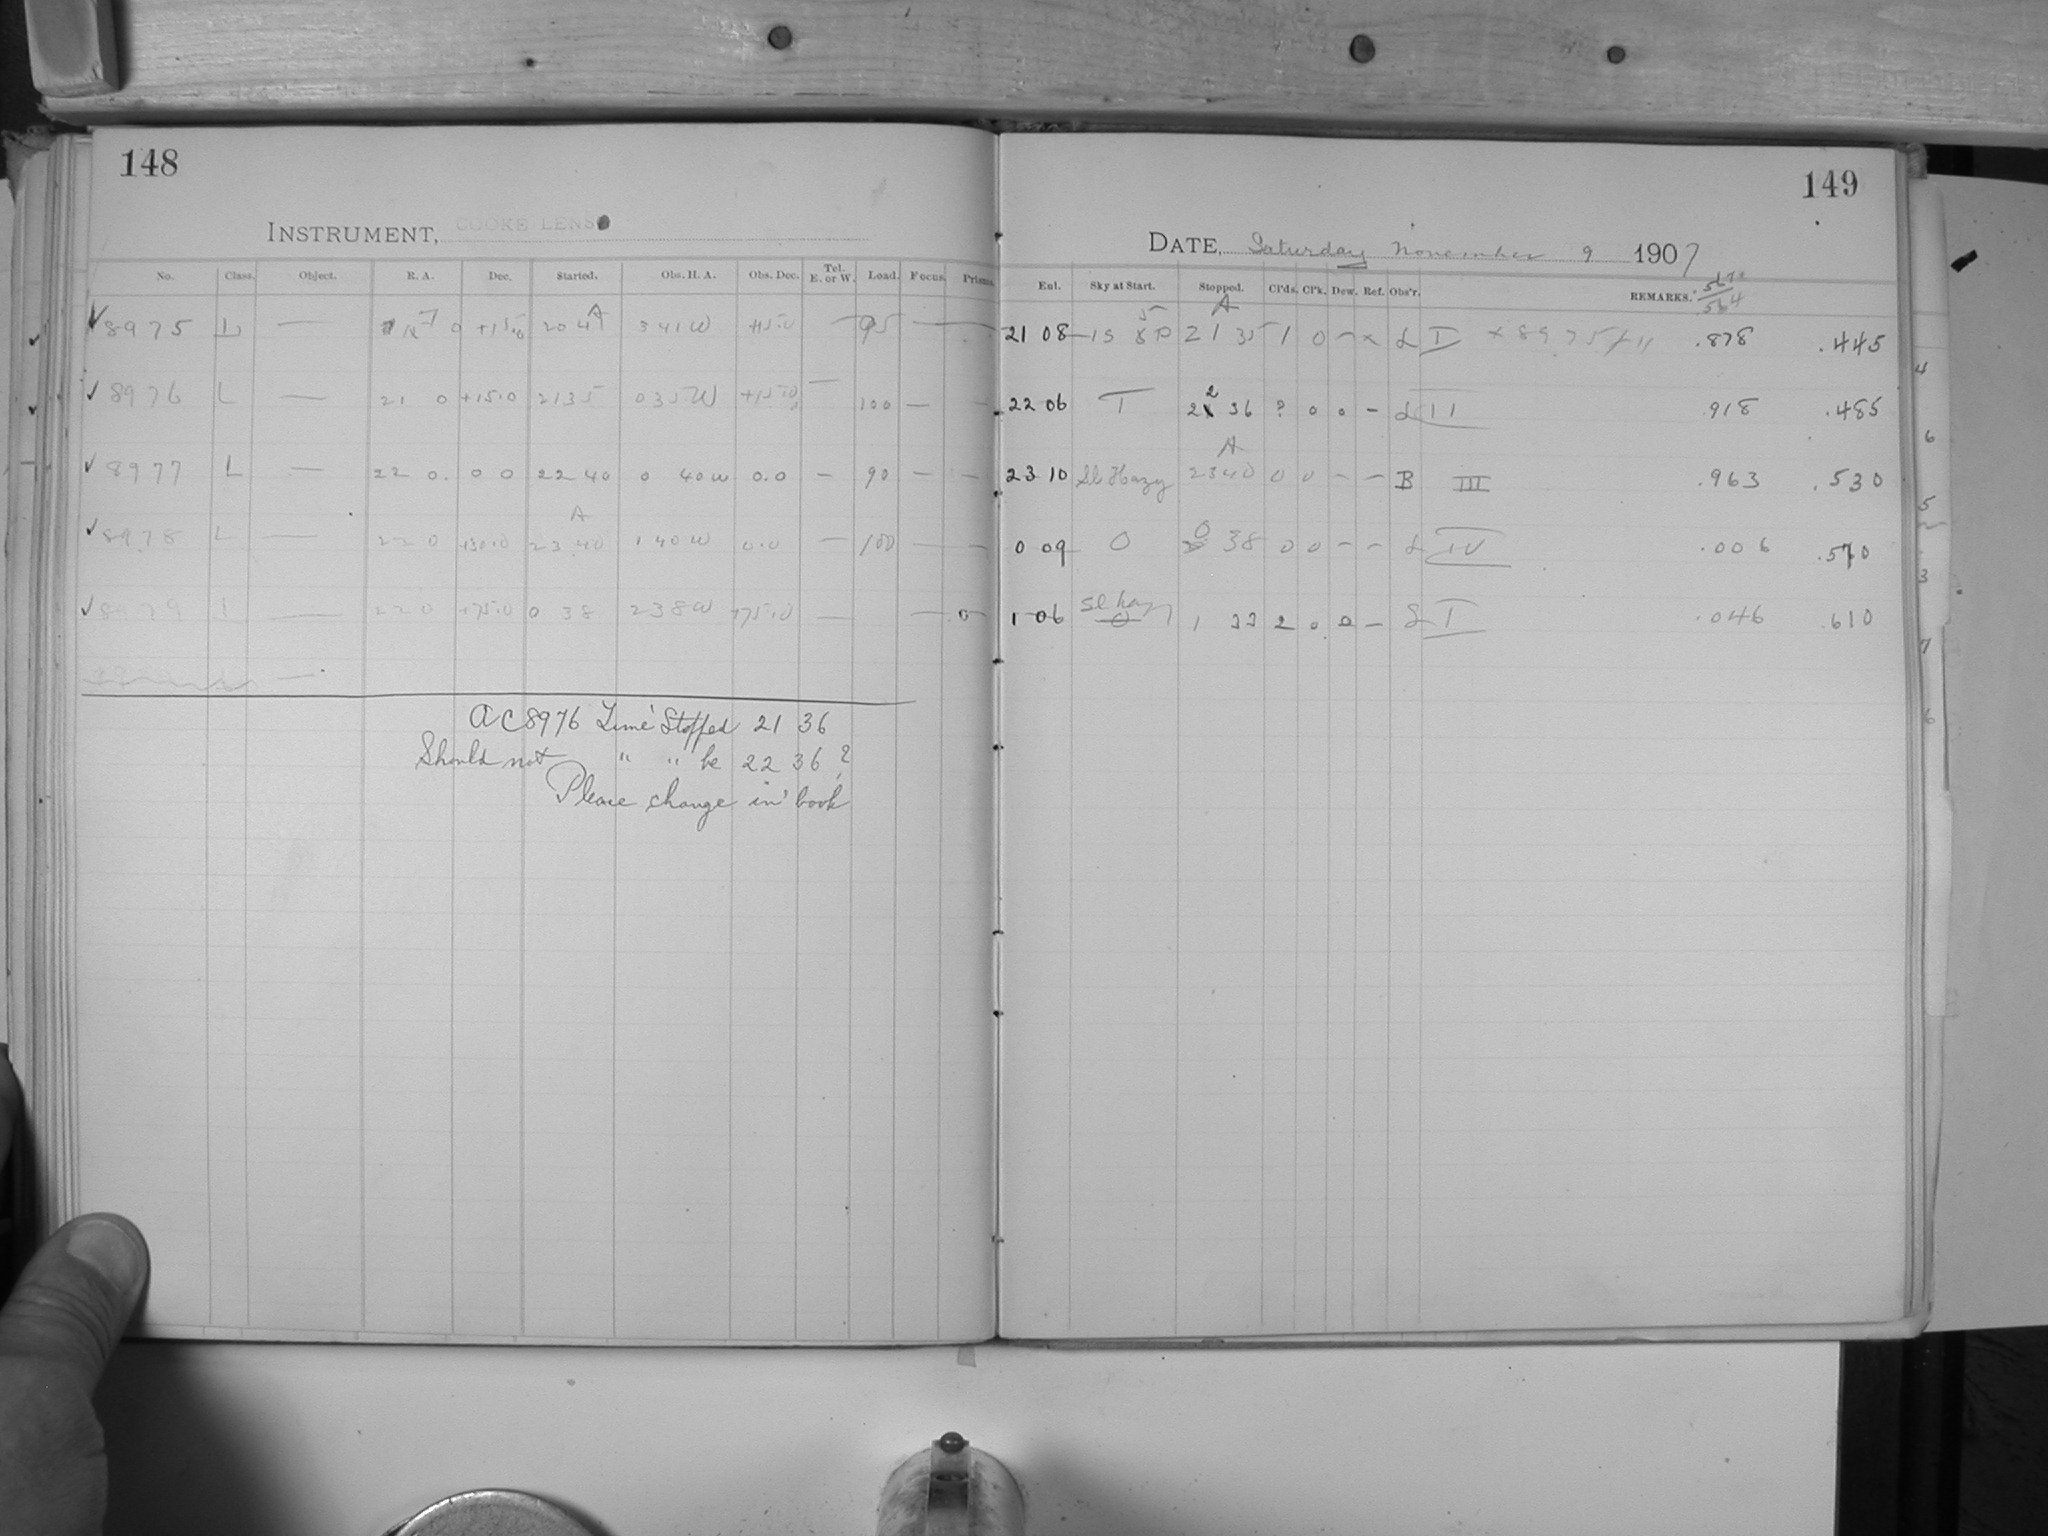 148
INSTRUMENT, COOKE LENS
No. Class. Object. R. A. Dec. Started. Obs. H. A. Obs. Dec. Tel. E. or W. Load. Focus. Prisms.
✓ 8975 L — 0 +15.0 20 4 A 3 41 W +15.0 — 95 — —
✓ 8976 L — 21 0 +15.0 21 35 0 35 W +15.0 — 100 — —
✓ 8977 L — 22 0. 0 0 22 40 0 40 W 0.0 — 90 — —
A
✓ 8978 L — 22 0 +30.0 23 40 1 40 W 0.0 — 100 — —
✓ 8979 L — 22 0 +75.0 0 38 2 38 W +75.0 — — 0
AC 8976 Time Stopped 21 36
Should not " " be 22 36 ?
Please change in book
149
DATE, Saturday November 9 1907
Enl. Sky at Start. Stopped. Cl'ds. Cl'k. Dew. Ref. Obs'r. REMARKS. 564
A
21 08 21 35 1 0 — × L I × 8975 .878 .445
22 06 T 22 36 ? 0 0 — L II .918 .485
A
23 10 Sl Hazy 23 40 0 0 — — B III .963 .530
0 09 0 0 38 0 0 — — L IV .006 .570
1 06 Sl hazy 1 22 2 0 0 — L I .046 .610